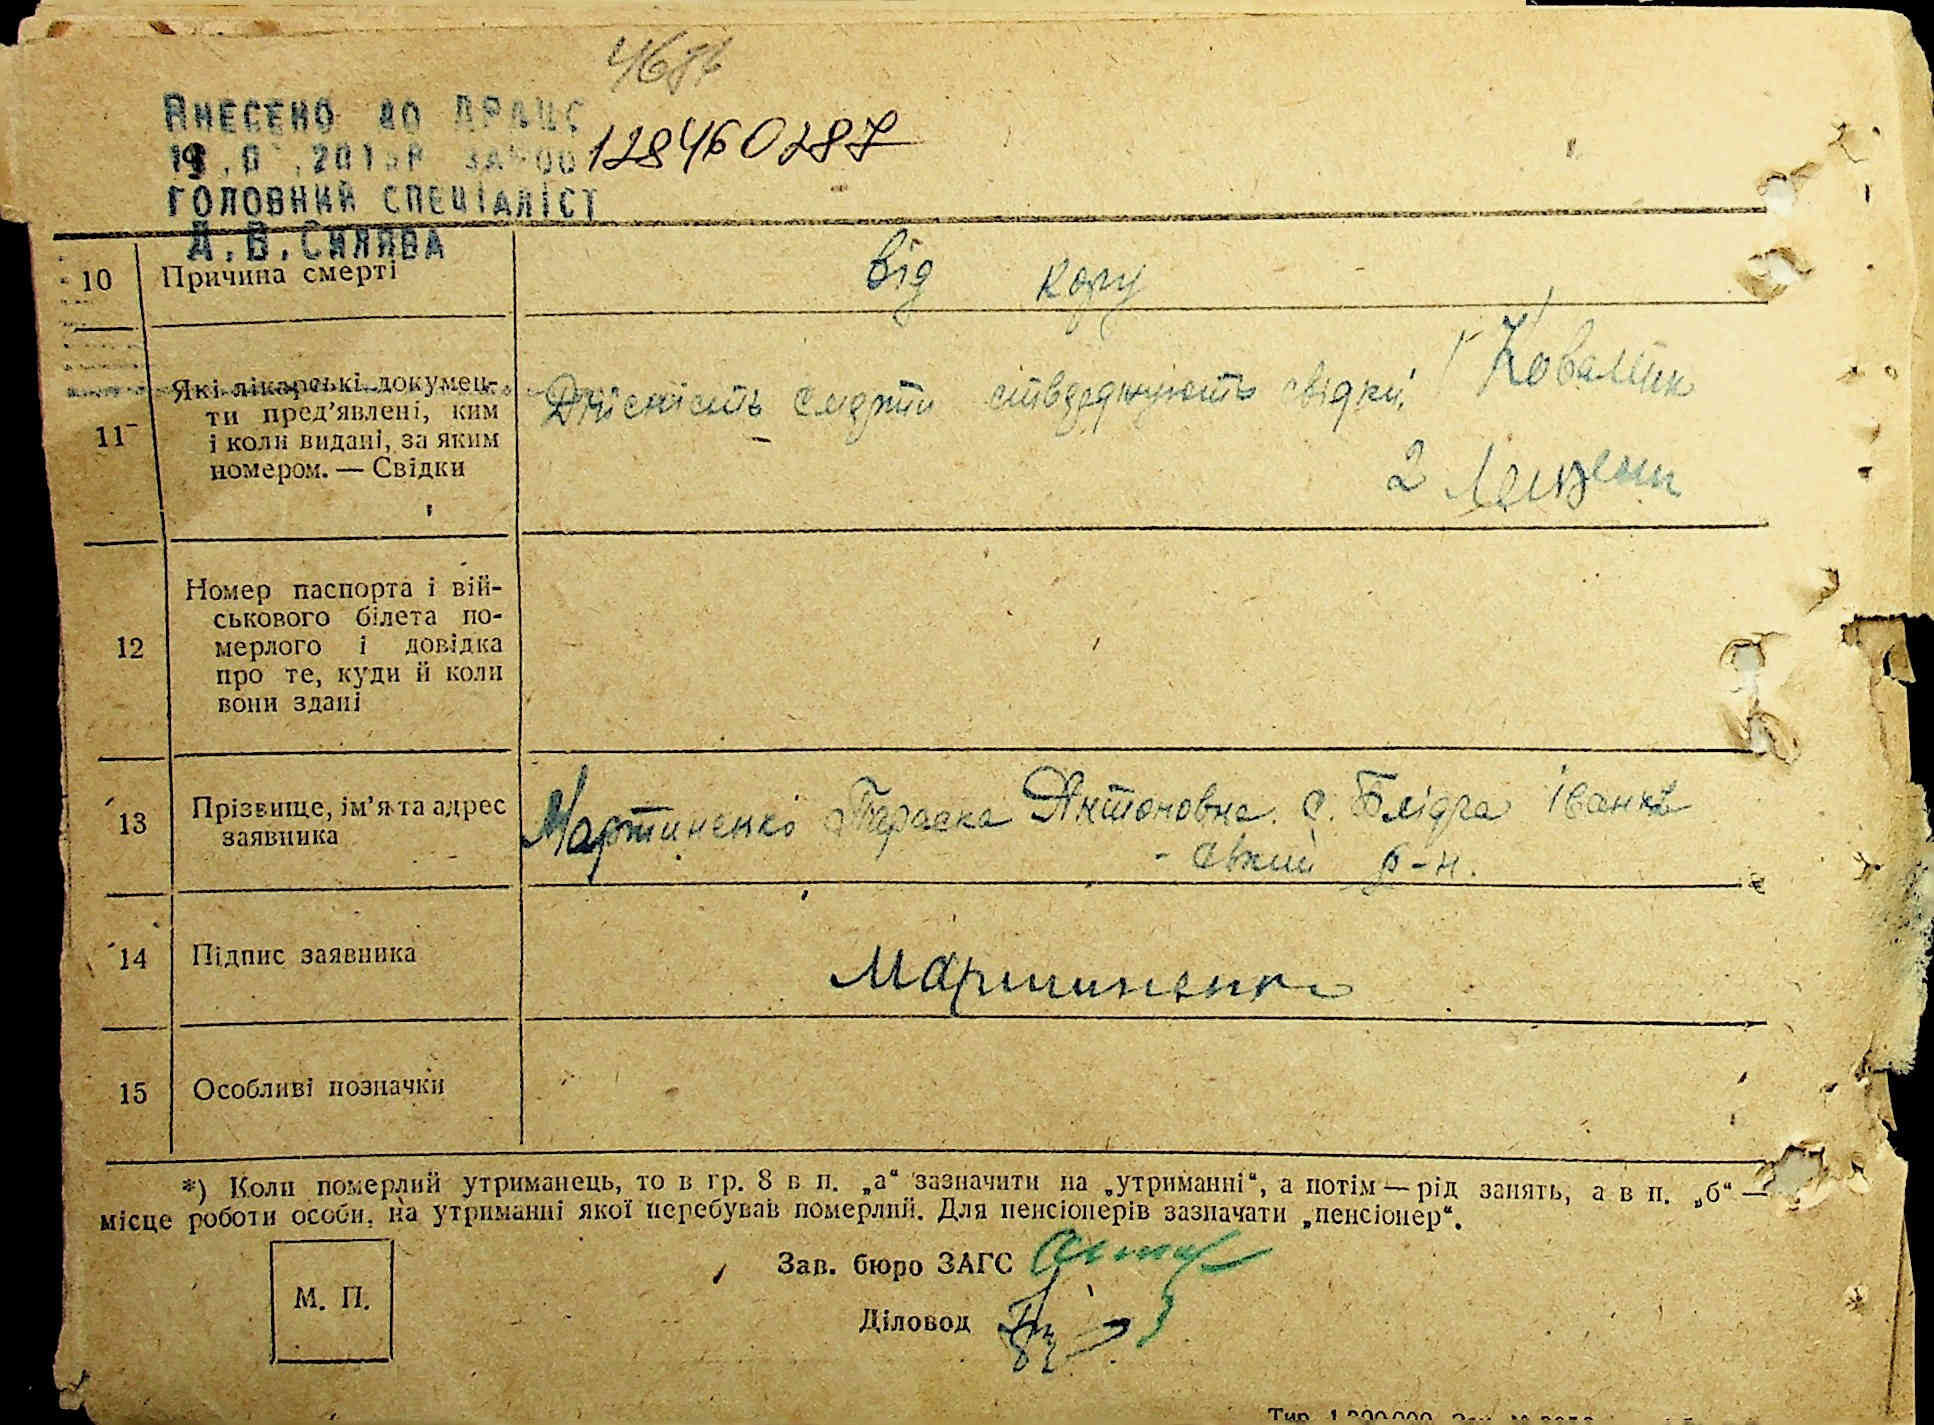 Внесено до ДРАЦС
128460287
головний спеціаліст
А.В.Силява
10 Причина смерті від кору
11 Які лікарські докумен-
ти пред’явлені, ким
і коли видані, за яким
номером. — Свідки
Дійсність смерти ствержують свідки: 1 Ковалень
2
12 Номер паспорта і вій-
ськового білета по-
мерлого і довідка
про те, куди й коли
вони здані
13 Прізвище, ім’я та адрес
заявника
Мартиненко Параска Антоновна. с. Блідча Іванкі
-вский р-н.
14 Підпис заявника Мартиненко
15 Особливі позначки
*) Коли померлий утриманець, то в гр. 8 в п. „а“ зазначити на „утриманні“, а потім — рід занять, а в п. „б“ —
місце роботи особи, на утриманні якої перебував померлий. Для пенсіонерів зазначати „пенсіонер“.
Зав. бюро ЗАГС
М. П.
Діловод